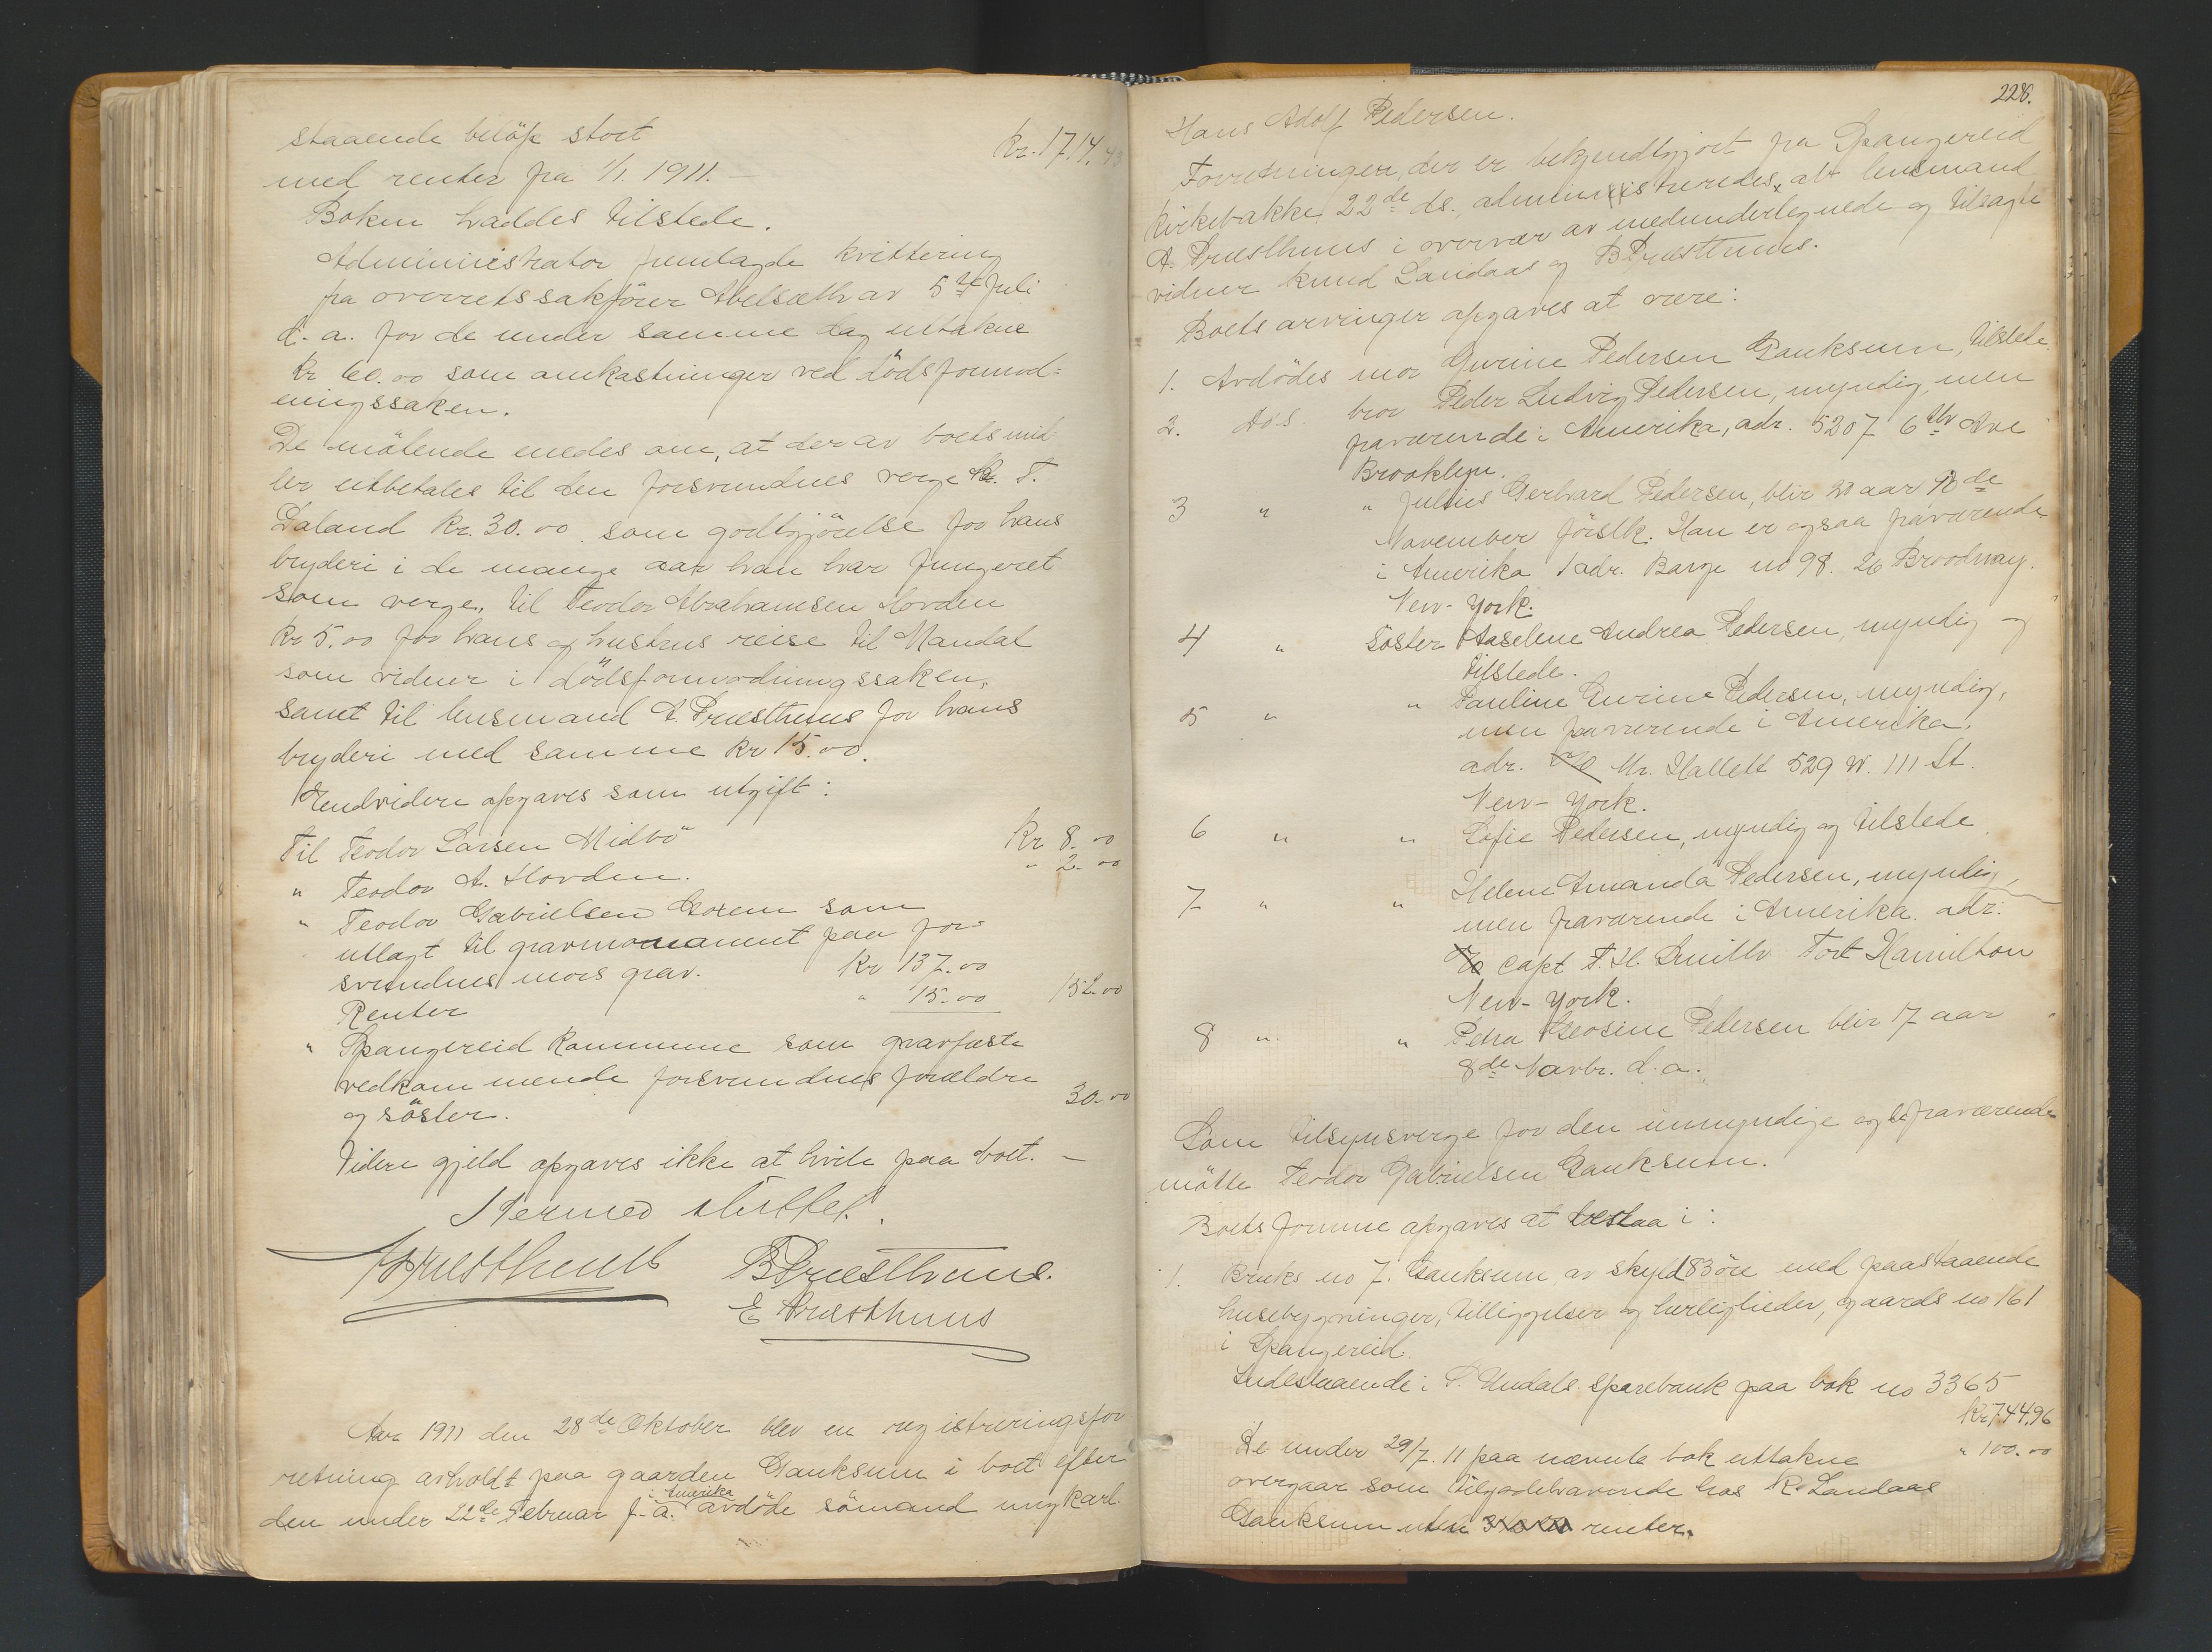 staaende beløp stort Kr. 1714,43
med renter fra 1/1. 1911. —
Boken haddes tilstede.
Administrator fremlagde kvittering
fra overretssakfører Abelsæth av 5te Juli
d. a. for de under samme dag uttakne
Kr 60.00 som omkostninger ved dødsformod-
ningssaken.
De møtende enedes om, at der av boets mid
ler utbetales til den forsvundnes verge Kr. T.
Daland Kr. 30.00 som godtgjørelse for hans
bryderi i de mange aar han har fungeret
som verge, til Teodor Abrahamsen Hovden
Kr 5.00 for hans og hustrus reise til Mandal
som vidner i dødsformodningssaken,
samt til lensmand A. Presthuus for hans
bryderi med samme Kr 15.00.
Endvidere opgaves som utgift:
Til Teodor Larsen Midbø Kr 8.00
" Teodor A. Hovden. " 2.00
" Teodor Gabrielsen Gosem som
utlagt til gravmonument paa for-
svundnes mors grav. Kr 137.00
Renter " 15.00 152.00
" Spangereid Kommune som gravfæste
vedkommende forsvundnes forældre
og søster. 30.00
Videre gjeld opgaves ikke at hvile paa boet. —
Hermed sluttet.
A Presthuus B Presthuus.
E Presthuus
Aar 1911 den 28de Oktober blev en registreringsfor
retning avholdt paa gaarden Gauksum i boet efter
i Amerika
den under 22de Februar f. a. avdøde sömand ungkarl
228.
Hans Adolf Pedersen.
Forretningen, der er bekjendtgjort fra Spangereid
Kirkebakke 22de ds., administreredes at lensmand
A. Presthuus i overvær av medunderlegnede og tilsagte
vidner Knud Landaas og B Presthuus.
Boets arvinger opgaves at være:
1. Avdødes mor Gurine Pedersen Gauksum, tilstede.
2. Avs. bror Peder Ludvig Pedersen, myndig, men
fraværende i Amerika, adr. 5207 6th Ave
Brooklyn.
3 " " Julius Gerhard Pedersen, blir 20 aar 92de
November förstk. Han er ogsaa fraværende
i Amerika adr. Barge no 98. 26 Broodway.
New-York.
4 " Søster Aaselene Andrea Pedersen, myndig og
tilstede.
5 " " Pauline Gurine Pedersen, myndig,
men fraværende i Amerika.
adr. c/o Mr. Hallett 529 W. 111 St.
New-York.
6 " " Sofie Pedersen, myndig og tilstede
7 " " Helene Amanda Pedersen, myndig,
men fraværende i Amerika. adr.
c/o Capt T. H. Smith Fort Hamilton
New-York.
8 " " Petra Teosine Pedersen blir 17 aar
8de Novbr. d. a.
Som tilsynsverge for den umyndige og de fraværende
mötte Teodor Gabrielsen Gauksum.
Boets formue opgaves at bestaa i:
1. Bruks no 7. Gauksum, av skyld 83 öre med paastaaende
husebygninger, tilliggelser og herligheder, gaards no 161
i Spangereid.
Indestaaende i S. Undals sparebank paa bok no 3365
Kr 744,96
De under 29/7. 11 paa nævnte bok uttakne " 100.00
overgaar som tilgodehavende hos K. Landaas
Gauksum uten renter.